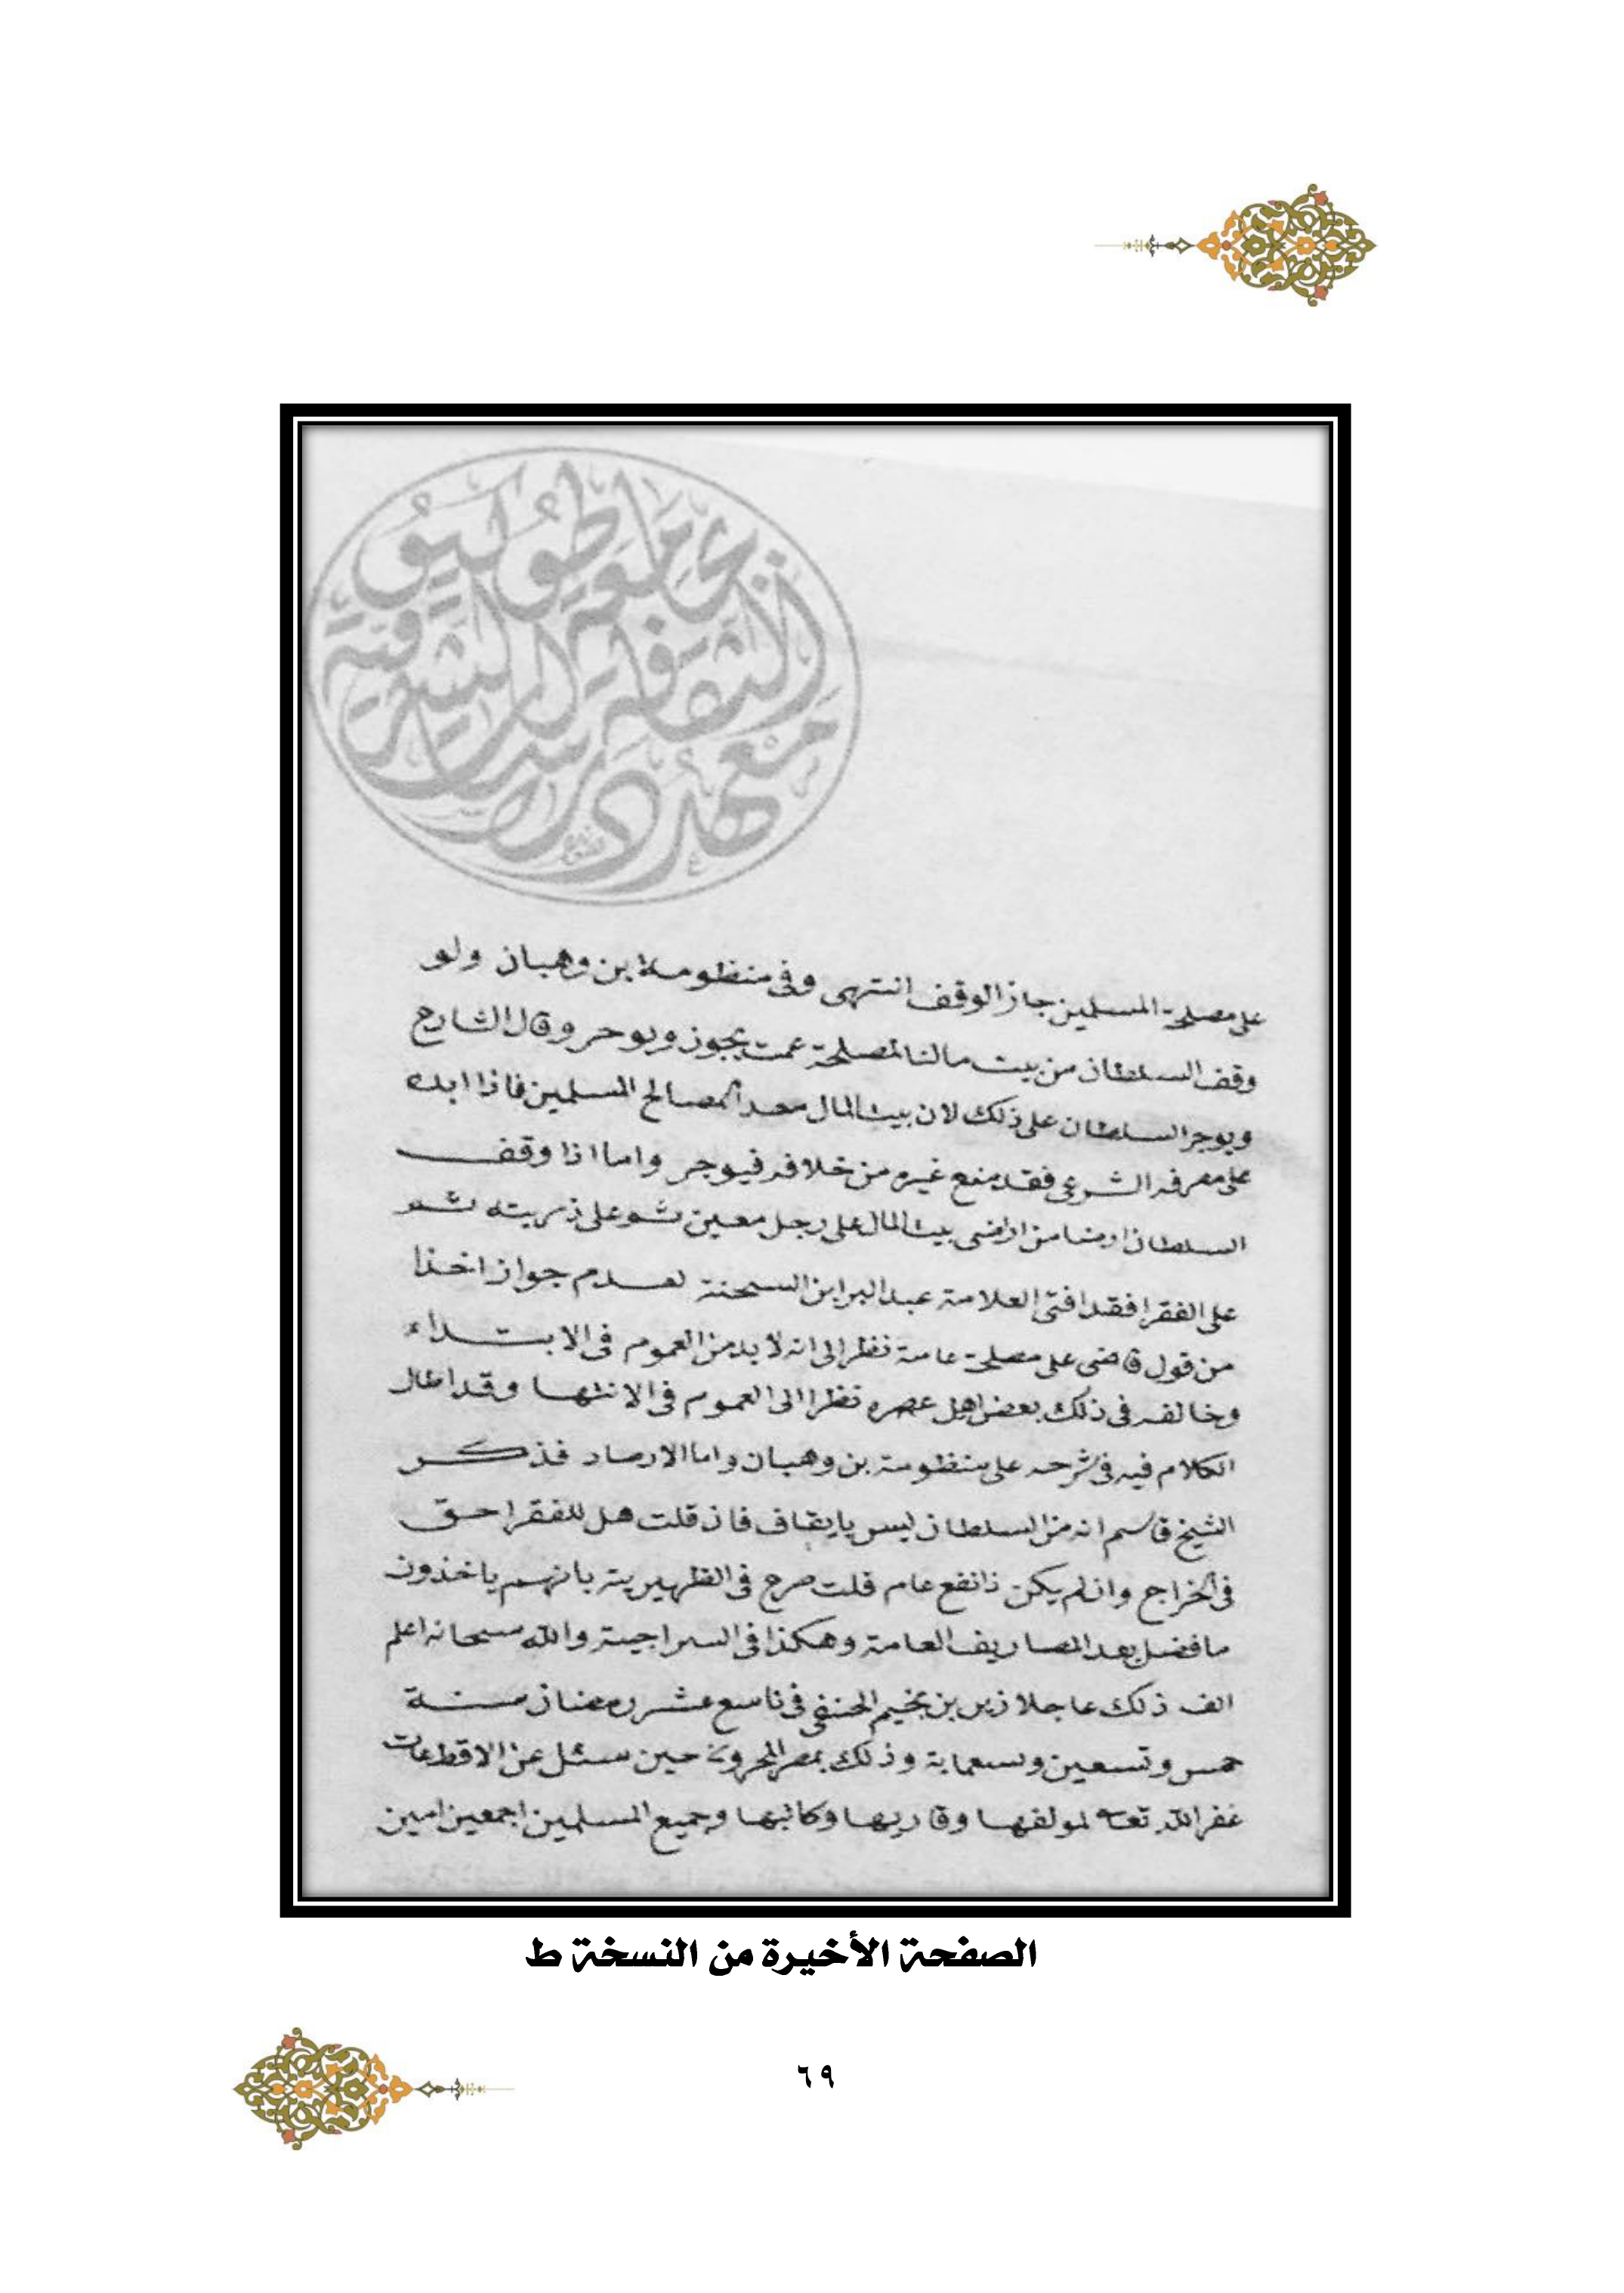 معهد دراسات الثقافة الشرقية بجامعة طوكيو
على مصلحة المسلمين جاز الوقف انتهى وفى منظومة ابن وهبان ولو
وقف السلطان من بيت مالنا لمصلحة عمت يجوز ويوجر وقال الشارح
ويوجر السلطان على ذلك لان بيت المال معد لمصالح المسلمين فاذا ابده
على مصرفه الشرعى فقد منع غيره من خلافه فيوجر واما اذا وقف
السلطان ارضا من اراضى بيت المال على رجل معين ثم على ذريته ثم
على الفقرا فقد افتى العلامة عبد البر ابن الشحنة لعدم جواز اخذا
من قول قاضى على مصلحة عامة نظر الى انه لا بد من العموم فى الابتداء
وخالفه فى ذلك بعض اهل عصره نظرا الى العموم فى الانتها وقد اطال
الكلام فيه فى شرحه على منظومة بن وهبان واما الارصاد فذكر
الشيخ قاسم انه من السلطان ليس بايقاف فان قلت هل للفقرا حق
فى الخراج وان لم يكن ذا نفع عام قلت صرح فى الظهيرية بانهم ياخذون
ما فضل بعد المصاريف العامة وهكذا فى السراجية والله سبحانه اعلم
الف ذلك عاجلا زين بن نجيم الحنفى فى تاسع عشر رمضان سنة
خمس وتسعين وتسعماية وذلك بمصر المحروسة حين سئل عن الاقطعات
غفر الله تعه لمولفها وقاريها وكاتبها وجميع المسلمين اجمعين امين
الصفحة الأخيرة من النسخة ط
٦٩